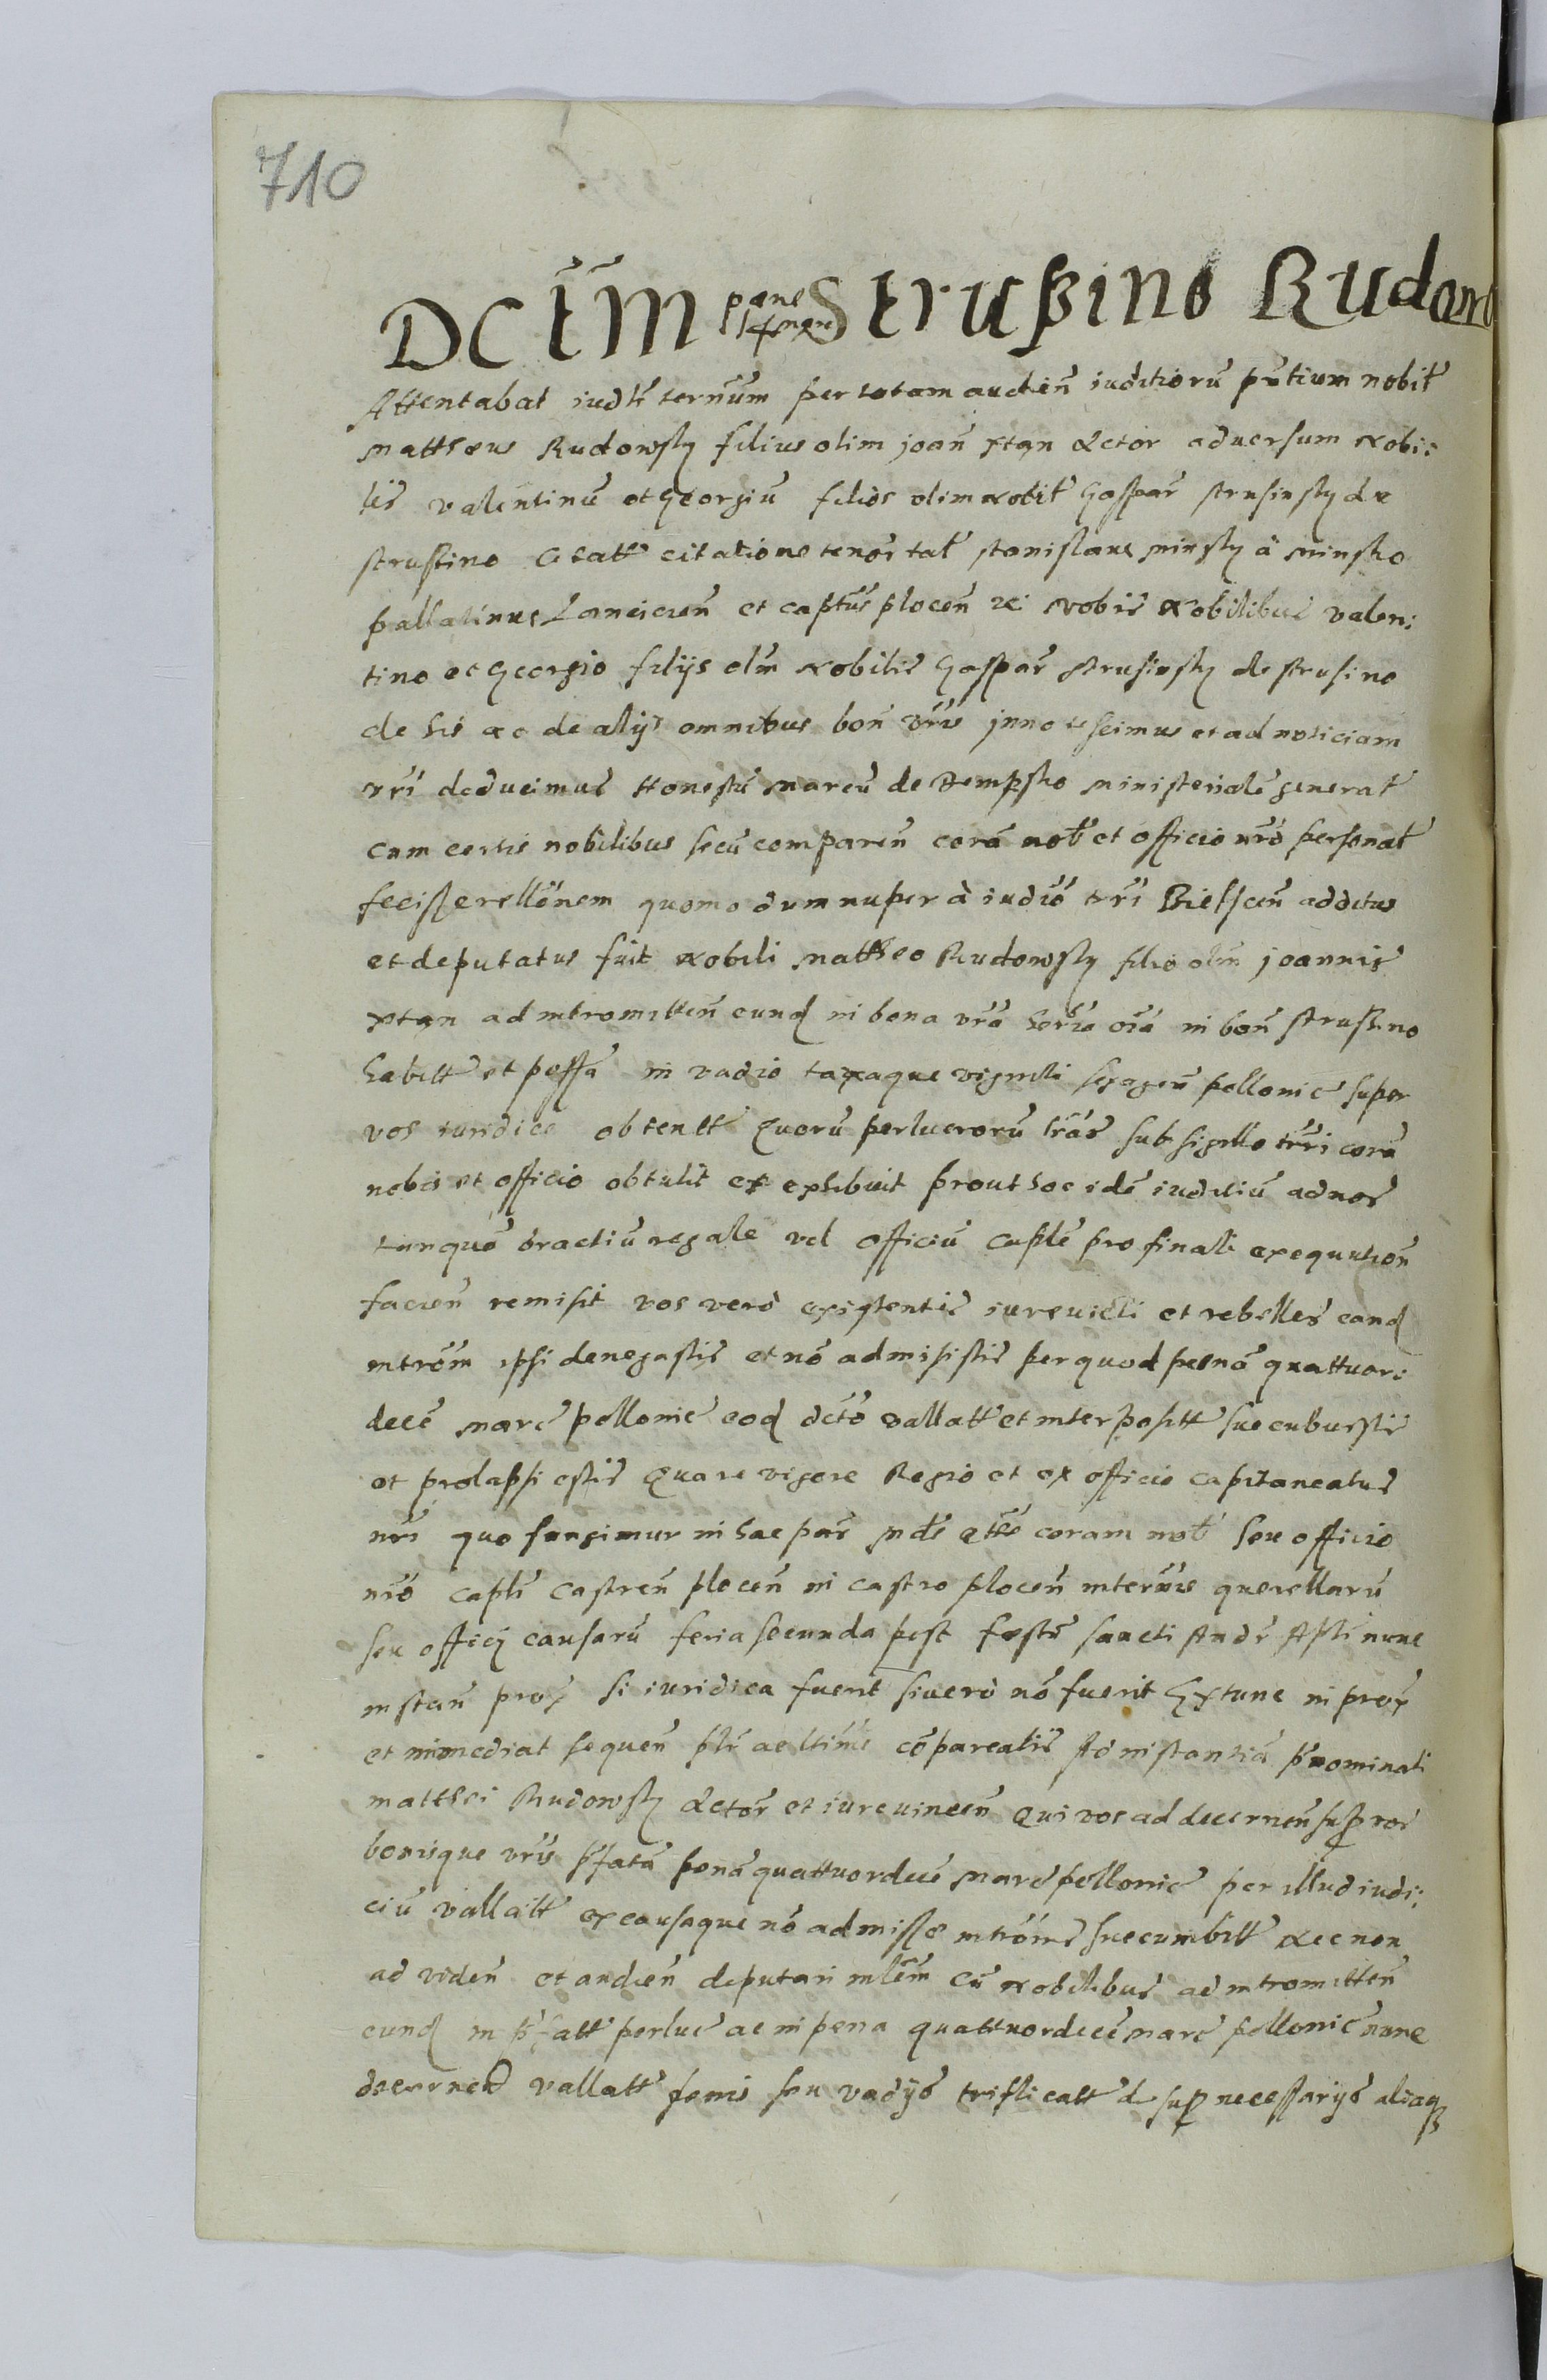 710
DCTM pene 14 mar Strußino Rudows
Attentabat iudlr termnum per totam audien iuditiorum pntium nobil
Mattheus Rudowsky filius olim joan ptan Actor aduersum Nobi:
lis valentinu et Georgiu filios olim Nobil Gaspar strusinsky de
strustino Citatt citatione tenor tal stanislaus minsky a minsko
pallatinus Lancicien et captus plocen etc vobis Nobilibus valen:
tino et Georgio filijs olm Nobilis Gaspar Strusinsky de strusino
de his ac de alijs omnibus bon vris jnnotescimus et ad noticiam
vri deducimus Honestu Marcu de Rempsko ministeriale general
cum certis nobilibus secu comparen cora nob et officio nro personal
fecisse rellonem quomodum nuper a iudio trri Bielscen additus
et deputatus fuit Nobili Mattheo Rudowsky filio olm joannis
ptan ad intromitten eund in bona vra heria oia in bon strusino
habitt et possa in vadio taxaque viginti sexagen pollonic super
vos iuridice obtentt Quoru perlucroru lras sub sigillo trri cora
nobis et officio obtulit et exhibuit prout hoc ide iuditiu ad nos
tanqua brachiu regale vel officiu caple pro finali exequution
facien remisit vos vero existentis iureuicti et rebelles eand
introm ipsi denegastis et no admisistis per quod pena quattuor:
dece marc pollonic eod dcto vallatt et interpositt succubuistis
et prolapsi estis Quare vigore Regio et ex officio capitaneatus
nri quo fungimur in hac par mds qtts coram nob seu officio
nro capli Castren plocen in castro plocen interis querellaru
seu officij causaru feria secunda post festu sancti Andr Apli nunc
instan prox si iuridica fuerit siuero no fuerit Extunc in prox
et immediat sequen plr ac ltime co pareatis Ad instantia pnominati
matthei Rudowsky Actor et iureuincen Qui vos ad decernen sup vos
bonisque vris pfata pena quattuordece marc pollonic per illud iudi:
ciu vallatt ex causaque no admisse introins succumbitt Nec non
ad viden et audien deputari mlem cu Nobilibus ad intromitten
eund in pfatt perluc ac in pena quattuordece marc pollonic nunc
decernend vallatt penis seu vadijs triplicatt de sup necessarijs aliaqs